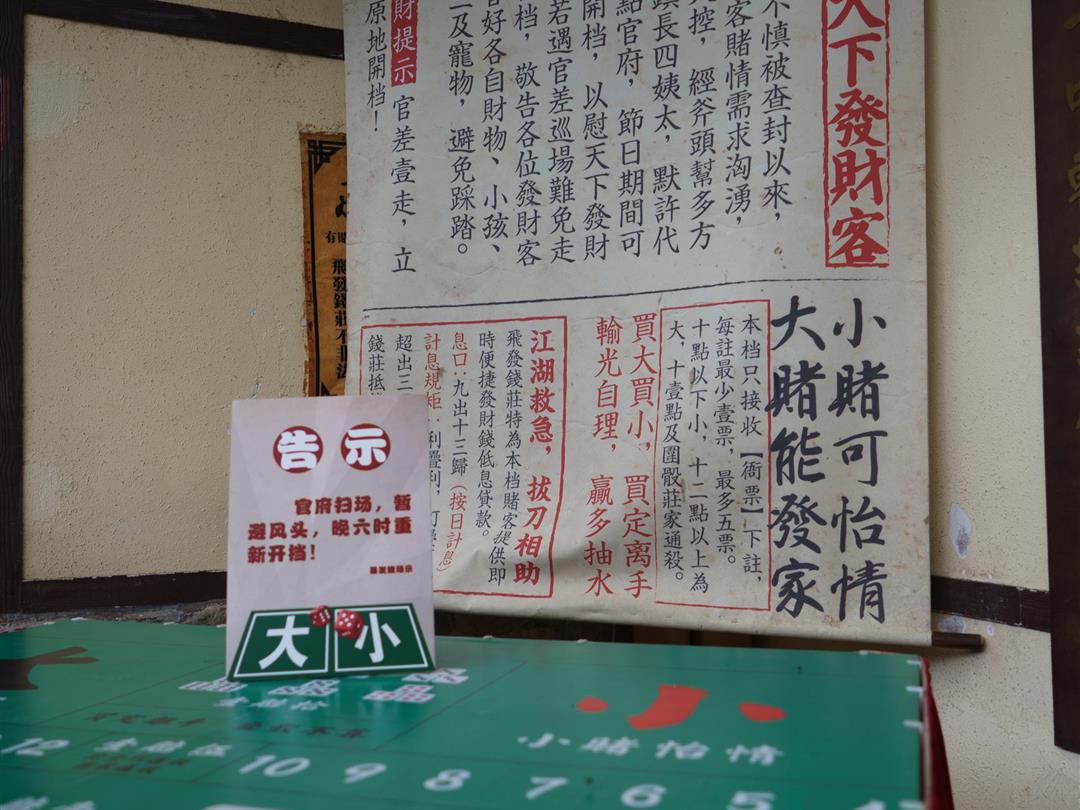 天下發財客
不慎被查封以來，
客賭情需求洶湧，
控，經斧頭幫多方
鎮長四姨太，默許代
點官府，節日期間可
開档，以慰天下發財
若遇官差巡場難免走
档，敬告各位發財客
好各自財物、小孩、
及寵物，避免踩踏。
財提示 官差壹走，立
原地開档！
小賭可怡情
大賭能發家
本档只接收【衙票】下註，
每註最少壹票，最多五票。
十點以下小，十二點以上為
大，十壹點及圍骰莊家通殺。
買大買小，買定离手
輸光自理，贏多抽水
江湖救急，拔刀相助
飛發錢莊特為本档賭客提供即
時便捷發財錢低息貸款。
息口：九出十三歸（按日計息）
計息規矩：利疊利，
超出三
錢莊抵
有賭
飛發錢莊不非法
告示
官府扫场，暂
避风头，晚六时重
新开挡！
大 小
小
小賭怡情
12
10 9 8 7 6 5